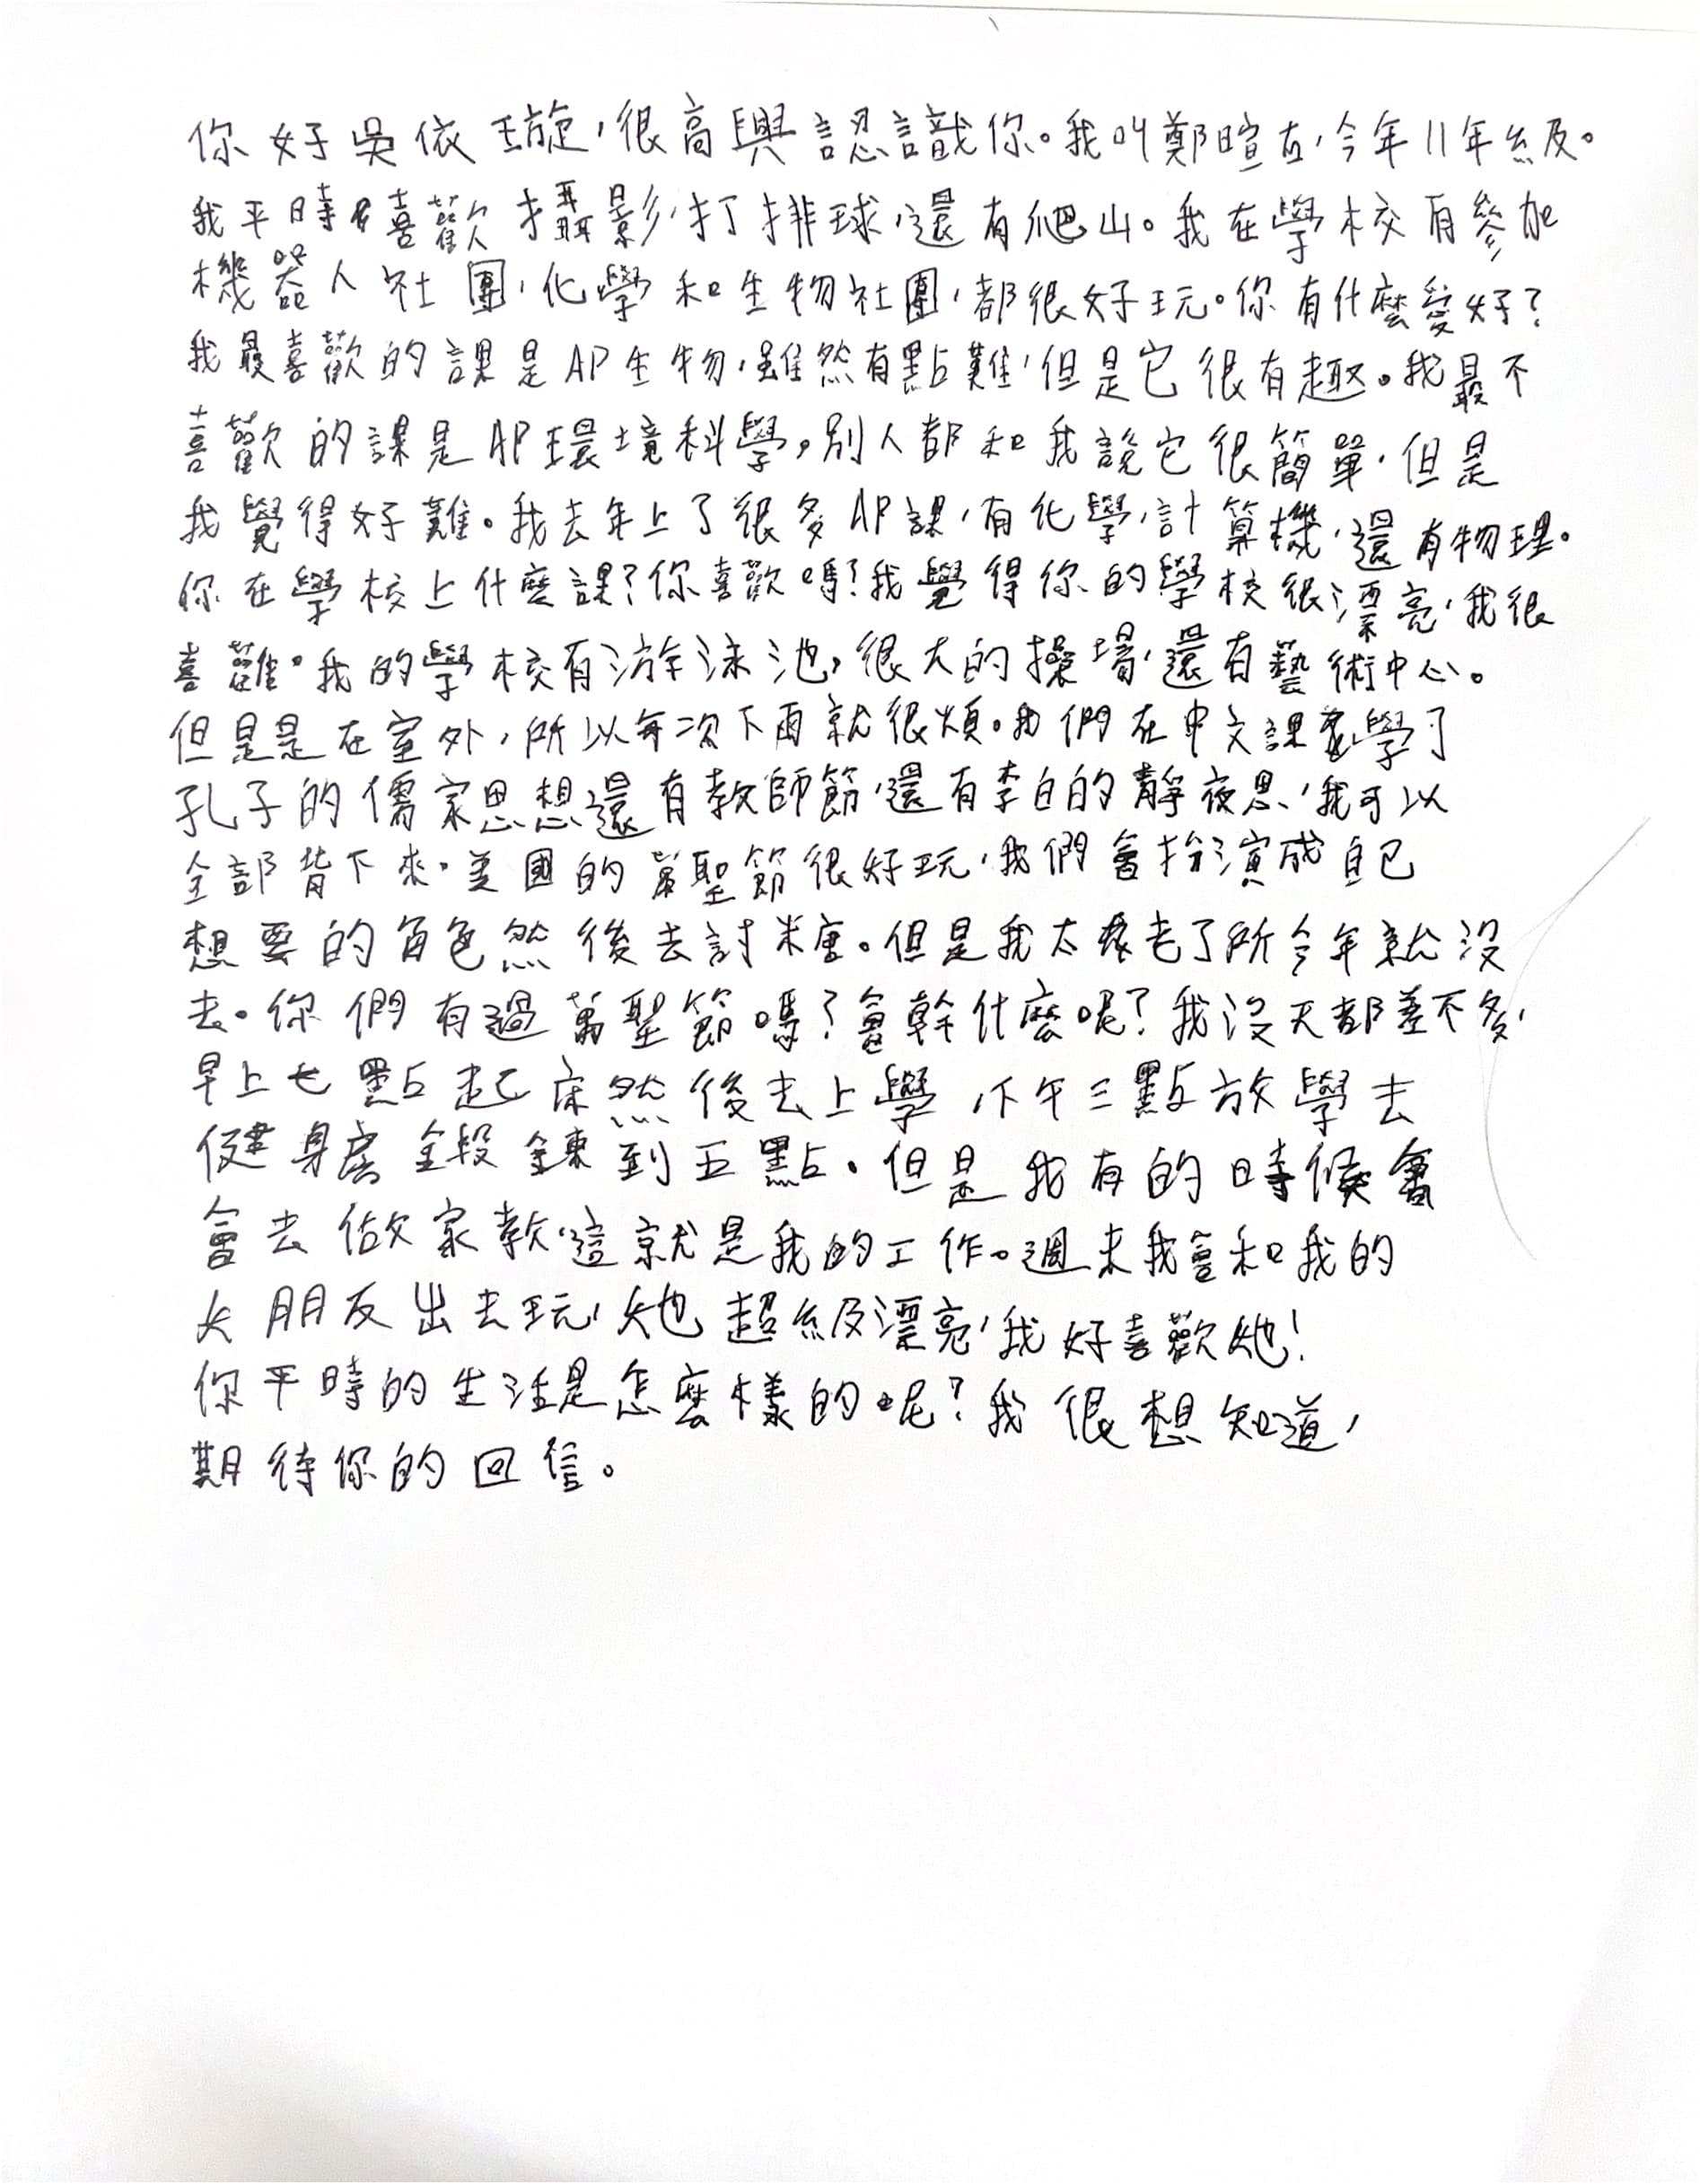 你好吳依璇，很高興認識你。我叫鄭暄在，今年11年級。
我平時喜歡攝影，打排球，還有爬山。我在學校有參加
機器人社團，化學和生物社團，都很好玩。你有什麼愛好？
我最喜歡的課是AP生物，雖然有點難，但是它很有趣。我最不
喜歡的課是AP環境科學，別人都和我說它很簡單，但是
我覺得好難。我去年上了很多AP課，有化學，計算機，還有物理。
你在學校上什麼課？你喜歡嗎？我覺得你的學校很漂亮，我很
喜難。我的學校有游泳池，很大的操場，還有藝術中心。
但是是在室外，所以每次下雨就很煩。我們在中文課學了
孔子的儒家思想還有教師節，還有李白的靜夜思，我可以
全部背下來。美國的萬聖節很好玩，我們會扮演成自己
想要的角色然後去討糖。但是我太老了所今年就沒
去。你們有過萬聖節嗎？會幹什麼呢？我沒天都差不多，
早上七點起床然後去上學，下午三點放學去
健身房鍛鍊到五點。但是我有的時候會
會去做家教，這就是我的工作。週末我會和我的
女朋友出去玩，她超級漂亮，我好喜歡她！
你平時的生活是怎麼樣的呢？我很想知道，
期待你的回信。